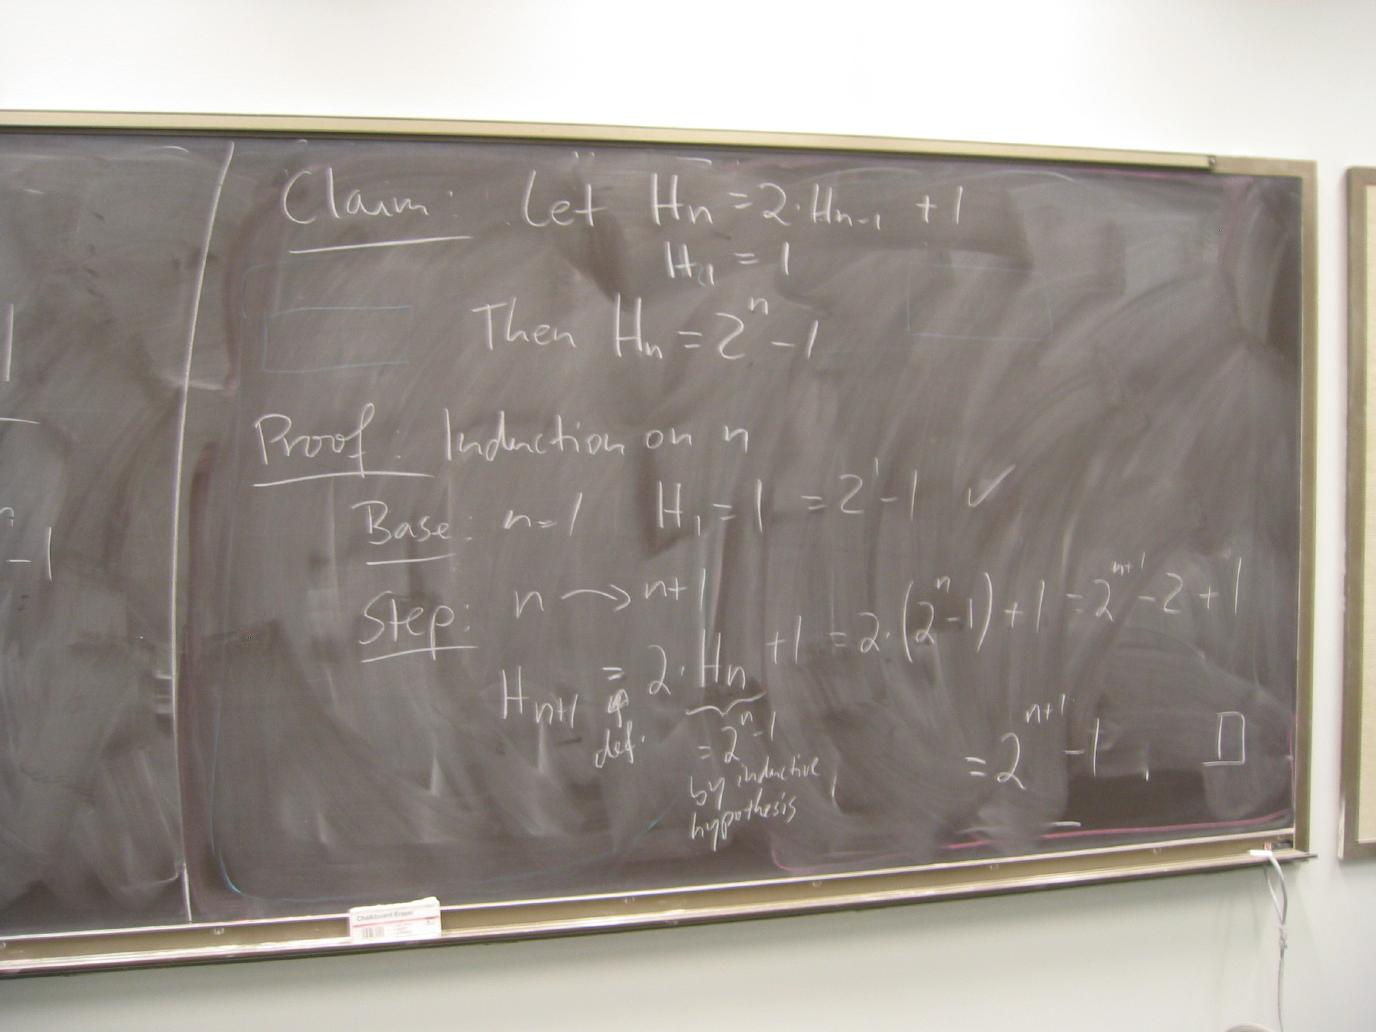 Claim: Let Hn = 2·Hn-1 + 1
H1 = 1
Then Hn = 2^n - 1
Proof: Induction on n
Base: n=1 H1 = 1 = 2^1 - 1 ✓
Step: n → n+1
Hn+1 = 2·Hn + 1 = 2·(2^n - 1) + 1 = 2^n+1 - 2 + 1
def. = 2^n - 1 = 2^n+1 - 1. □
by inductive
hypothesis
Chalkboard Eraser